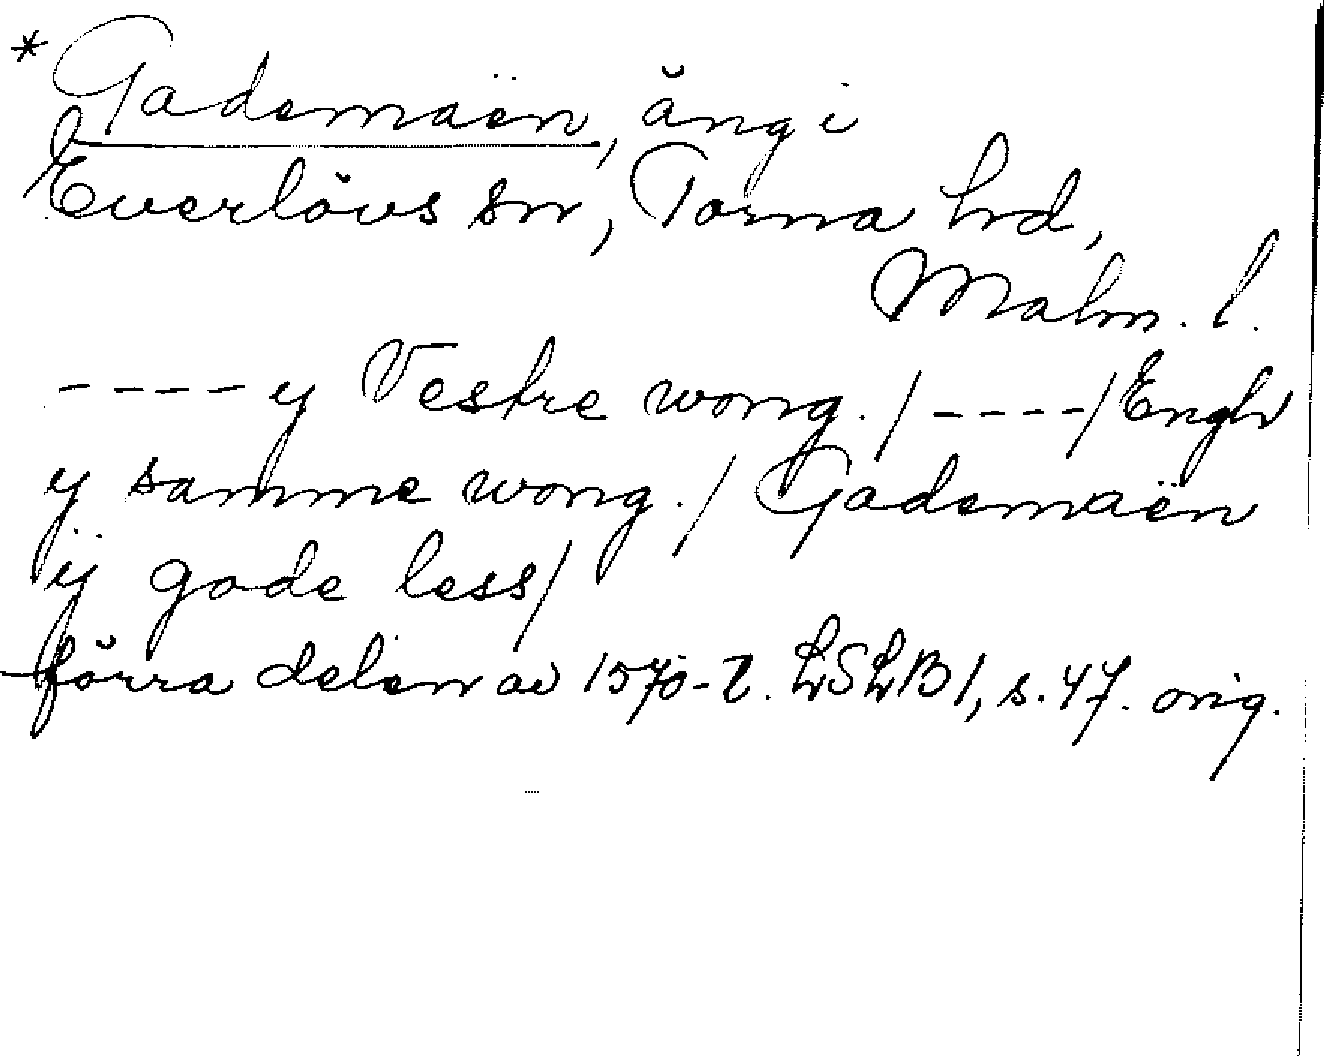 * Gademaën, äng i
Everlövs sn, Torna hd,
Malm. l.
---- y Vestre wong. / ---- / Engh
y samme wong. / Gademaën
ij gode less /
förra delen av 1570-t. LSLB 1, s. 47. orig.